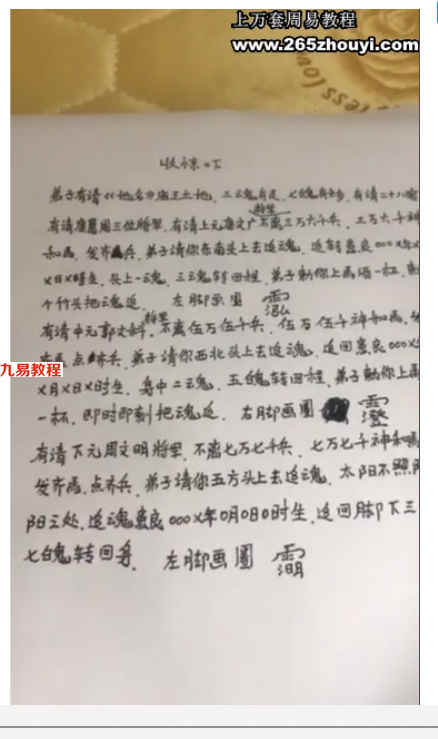 上万套周易教程
www.265zhouyi.com
收惊
弟子有请《地名》庙王土地，三魂有走，七魄有，有请二十八
有请唐葛周三位将军，有请上元唐文广将军，三万六千兵，三万六千神
和马，发齐兵，弟子请你东南头上去追魂，追转患良000X年X
X日X时生，头上一魂，三魂转回程，弟子酬你上马酒一杯，
个竹头把魂追，左脚画圈
九易教程
有请中元郭文将军，不离伍万伍千兵，伍万伍千神和马，
点齐兵，弟子请你西北头上去追魂，追回患良000X
X月X日X时生，身中二魂，五魄转回程，弟子酬你上马
一杯，即时即刻把魂追，右脚画圈
有请下元周文明将军，不离七万七千兵，七万七千神和
发齐马，点齐兵，弟子请你五方头上去追魂，太阳不照
阳三处，追魂患良000X年0月0日0时生，追回脚下三
七魄转回身，左脚画圈